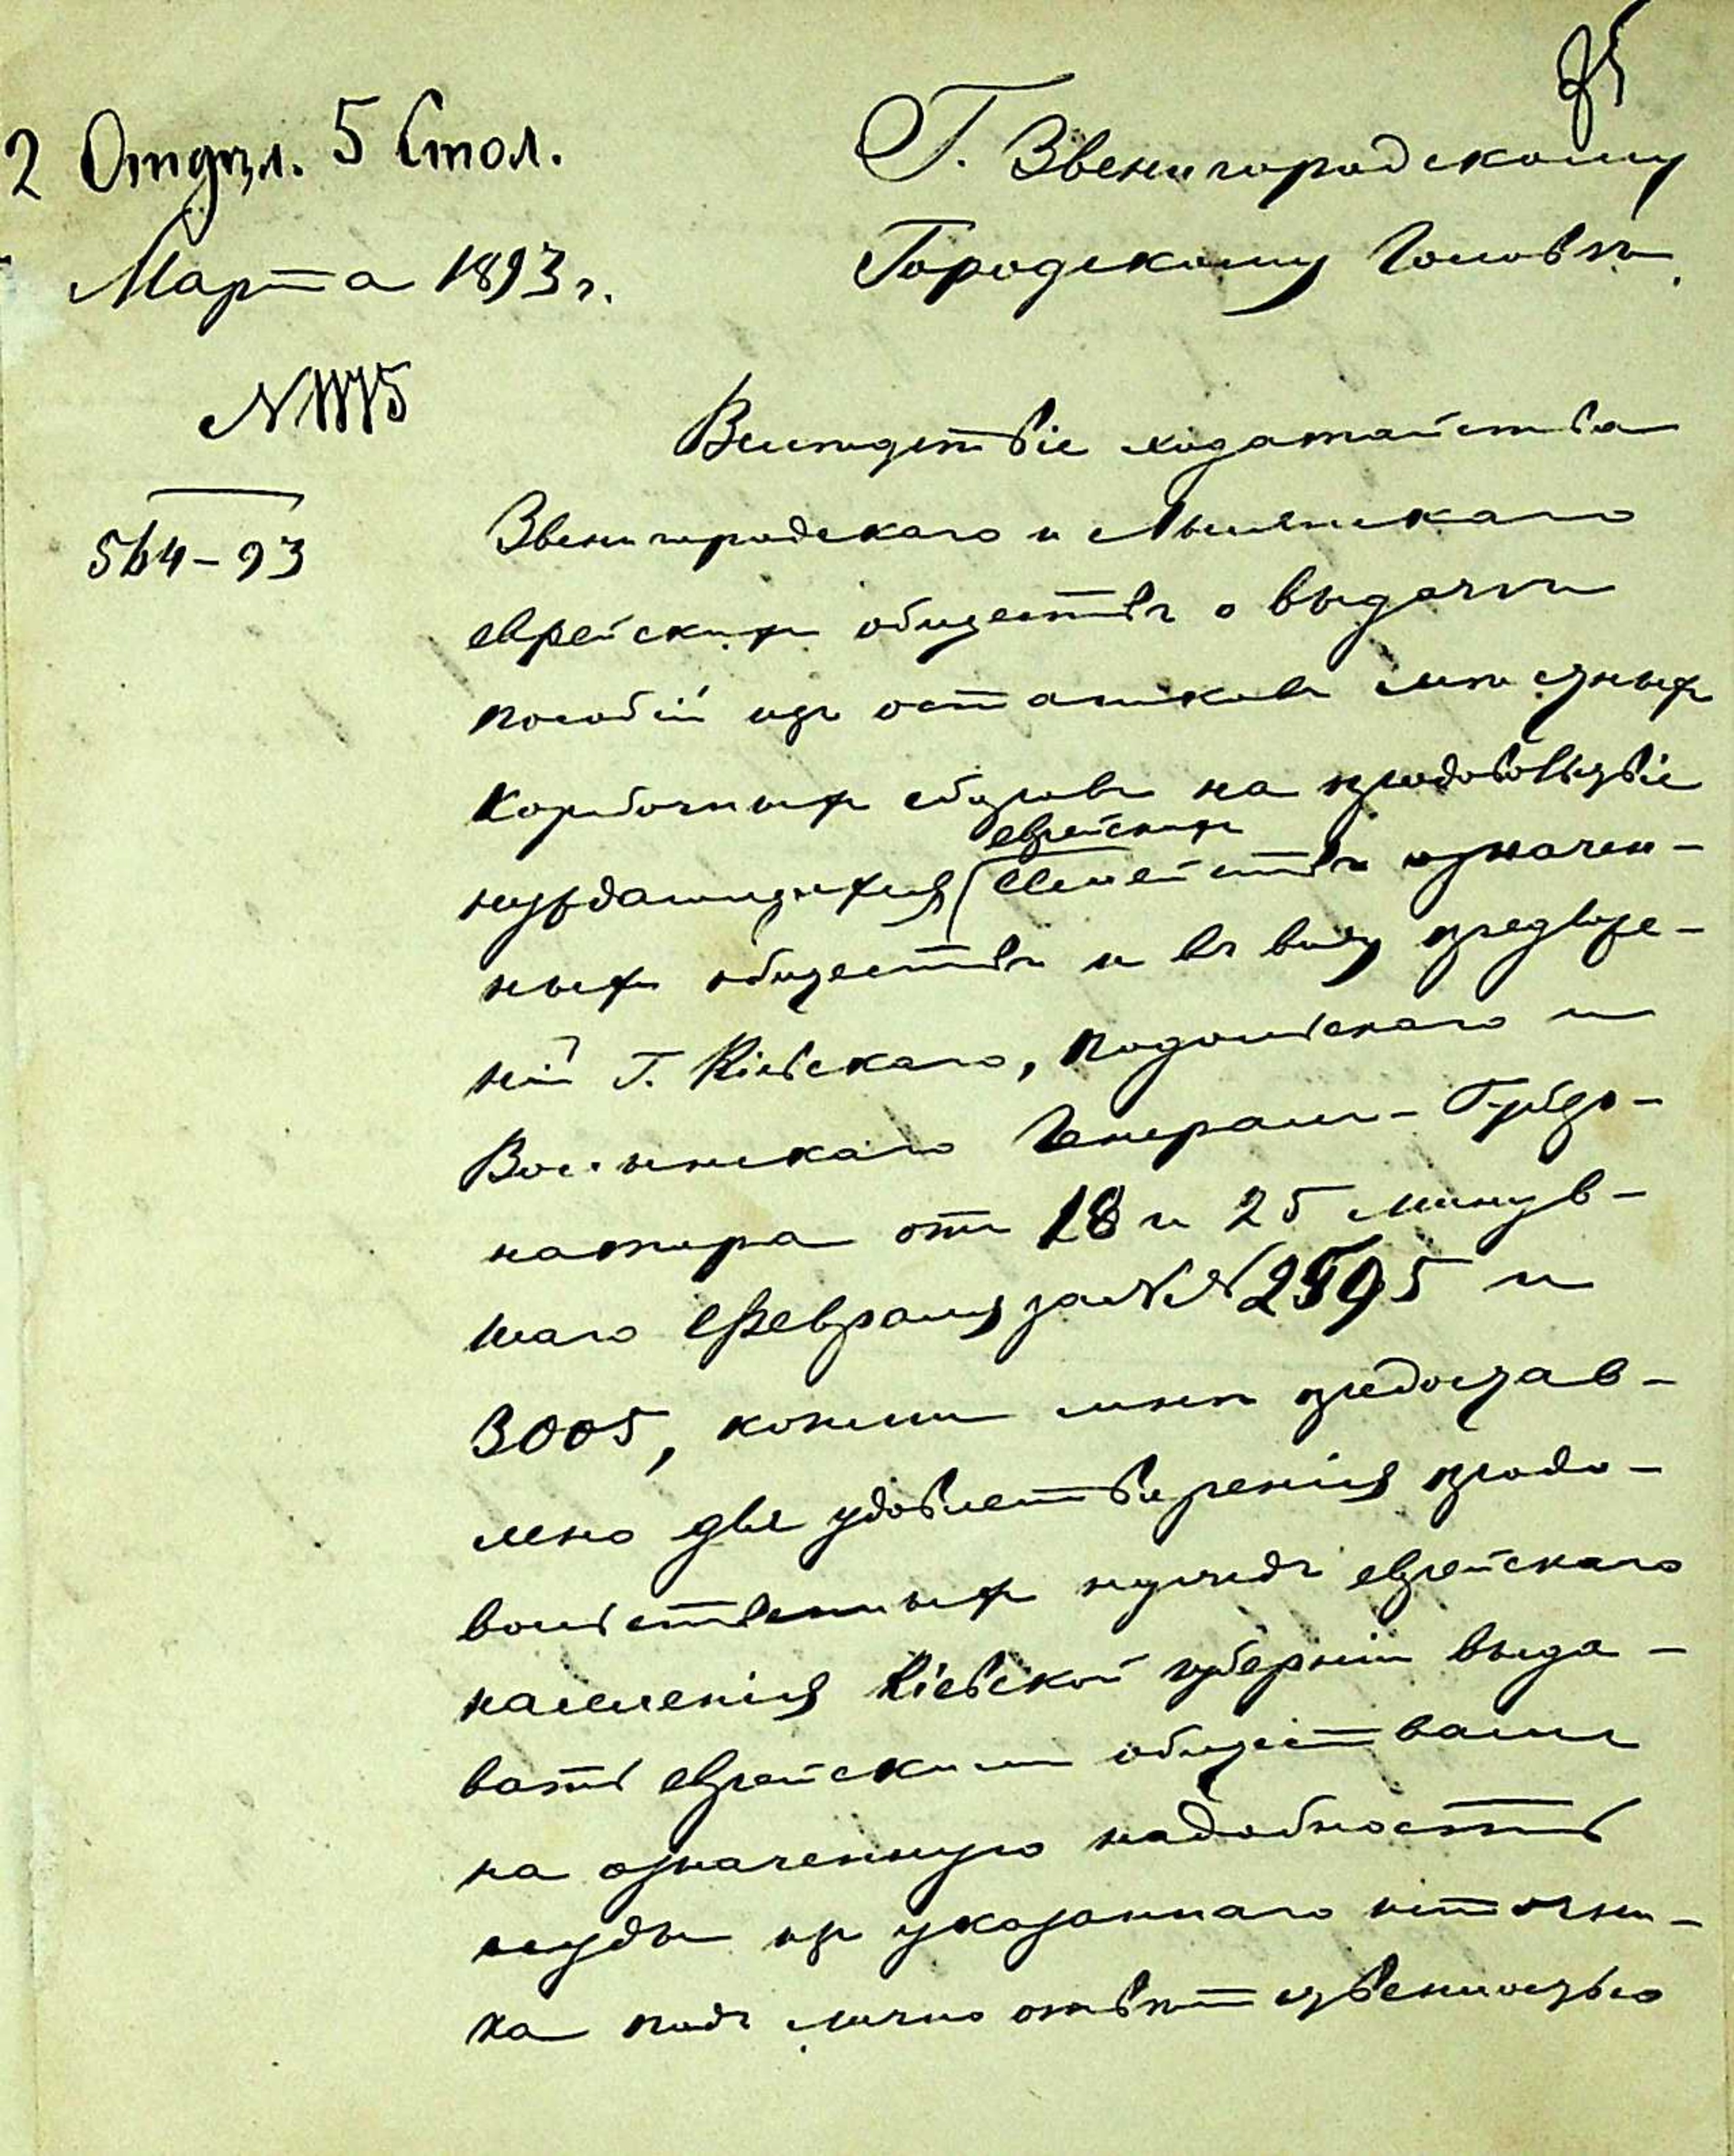 35
2 Отдѣл. 5 Стол.
Марта 1893 г.
Г. Звенигородскому
Городскому Головѣ.
N 1115
564-93
Вслѣдствіе ходатайства
Звенигородскаго и Лысянскаго
еврейскихъ обществъ о выдачѣ
пособій изъ остатковъ мѣстныхъ
коробочныхъ сборовъ на продовольствіе
еврейскихъ
нуждающихся семействъ означен-
ныхъ обществъ и въ виду предложе-
ній Г. Кіевскаго, Подольскаго и
Волынскаго Генералъ-Губер-
натора отъ 18 и 25 минув-
шаго Февраля за NN 2595 и
3005, коими мнѣ предостав-
лено для удовлетворенія продо-
вольственныхъ нуждъ еврейскаго
населенія Кіевской губерніи выда-
вать еврейскимъ обществамъ
на означенную надобность
ссуды изъ указаннаго источни-
ка подъ лично отвѣтственностью